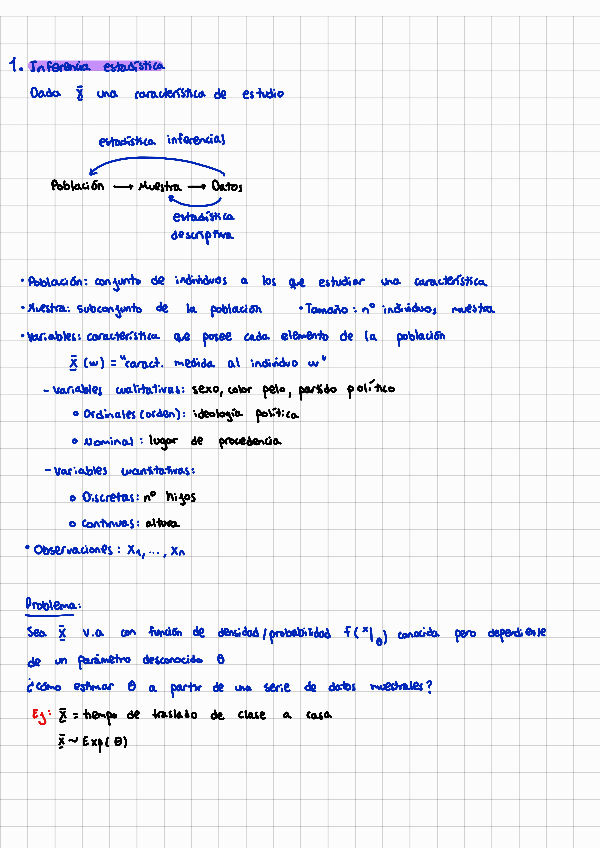 1. Inferencia estadística
Dada X̄ una característica de estudio
estadística inferencias
Población → Muestra → Datos
estadística
descriptiva
· Población: conjunto de individuos a los que estudiar una característica
· Muestra: subconjunto de la población · Tamaño: nº individuos muestra
· Variables: característica que posee cada elemento de la población
X̄(w) = "caract. medida al individuo w"
- Variables cualitativas: sexo, color pelo, partido político
o Ordinales (orden): ideología política
o Nominal: lugar de procedencia
- Variables cuantitativas:
o Discretas: nº hijos
o Continuas: altura
· Observaciones: x₁, ..., xₙ
Problema:
Sea X̄ v.a con función de densidad/probabilidad f(x|θ) conocida pero dependiente
de un parámetro desconocido θ
¿cómo estimar θ a partir de una serie de datos muestrales?
Ej: X̄ = tiempo de traslado de clase a casa
X̄ ~ Exp(θ)